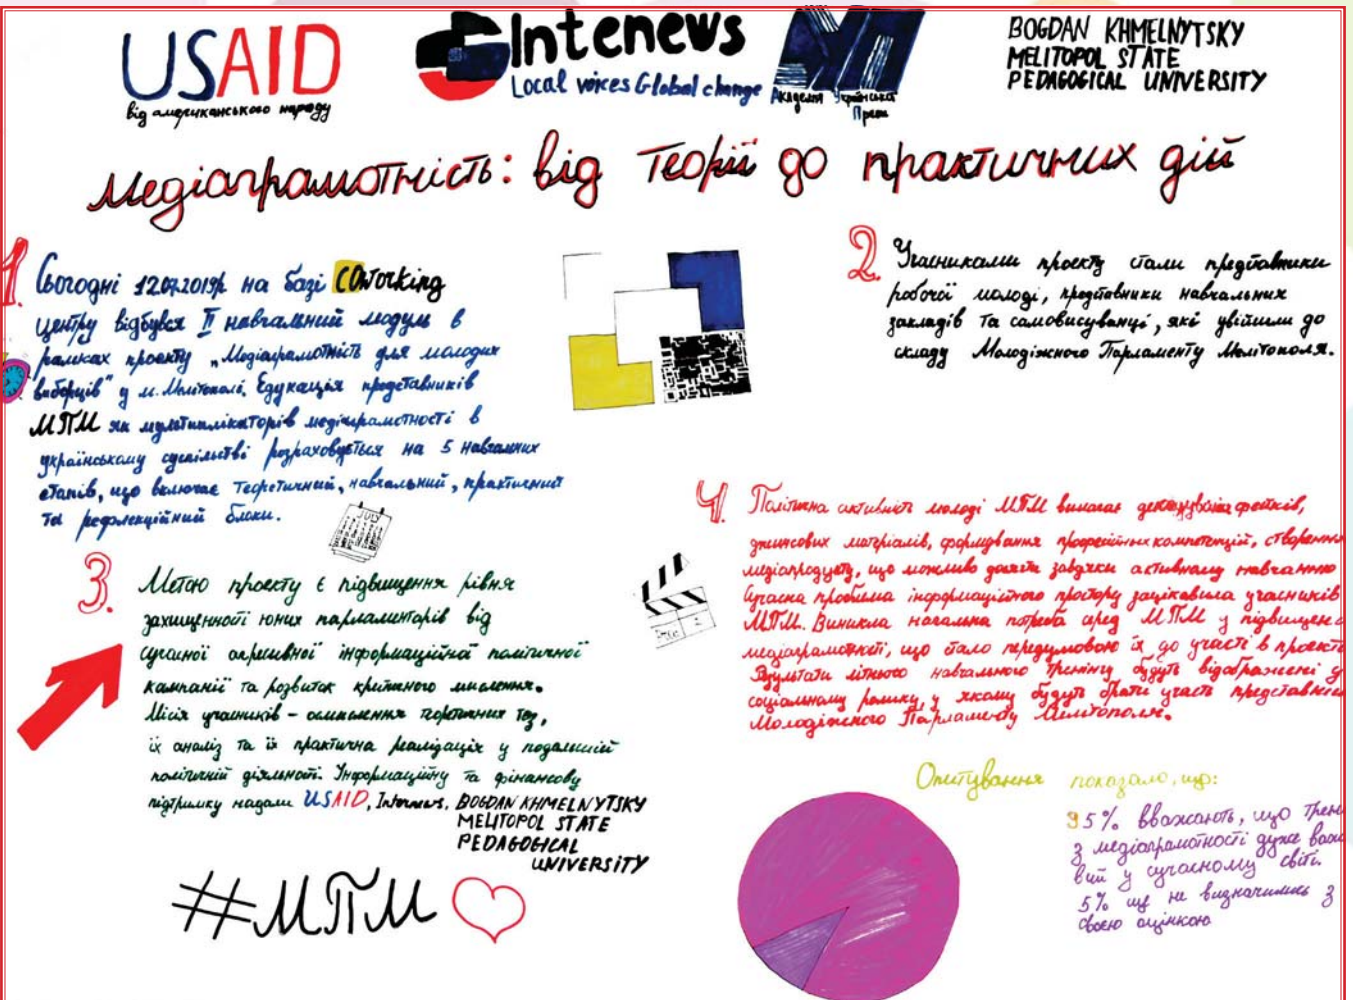 USAID
від американського народу
Intenews
Local voices Global change
Академія Української
Преси
BOGDAN KHMELNYTSKY
MELITOPOL STATE
PEDAGOGICAL UNIVERSITY
Медіаграмотність: від теорії до практичних дій
1. Сьогодні 12.07.2019р на базі COworking
центру відбувся II навчальний модуль в
рамках проекту „Медіаграмотність для молодих
виборців" у м. Мелітополі. Едукація представників
МПМ як мультиплікаторів медіаграмотності в
українському суспільстві розраховується на 5 навчальних
етапів, що включає теоретичний, навчальний, практичний
та рефлекційний блоки.
2. Учасниками проекту стали представники
робочої молоді, представники навчальних
закладів та самовисуванці, які увійшли до
складу Молодіжного Парламенту Мелітополя.
3. Метою проекту є підвищення рівня
захищенності юних парламентарів від
сучасної агресивної інформаційної політичної
кампанії та розвиток критичного мислення.
Місія учасників – осмислення теоретичних тез,
їх аналіз та їх практична реалізація у подальшій
політичній діяльності. Інформаційну та фінансову
підтримку надали USAID, Internews, BOGDAN KHMELNYTSKY
MELITOPOL STATE
PEDAGOGICAL
UNIVERSITY
#МПМ
4. Політична активність молоді МПМ вимагає фейків,
джинсових матеріалів, формування професійних компетенцій, створення
медіапродукту, що можливо досягти завдяки активному навчанню
Сучасна проблема інформаційного простору зацікавила учасників
МПМ. Виникла нагальна потреба серед МПМ у підвищенн
медіаграмотності, що стало передумовою їх до участі в проекті
Результати літнього навчального тренінгу будуть відображені у
соціальному ролику, у якому будуть брати участь представник
Молодіжного Парламенту Мелітополя.
Опитування показало, що:
95% вважають, що трен
з медіаграмотності дуже важ
вий у сучасному світі.
5% ще не визначились з
своєю оцінкою